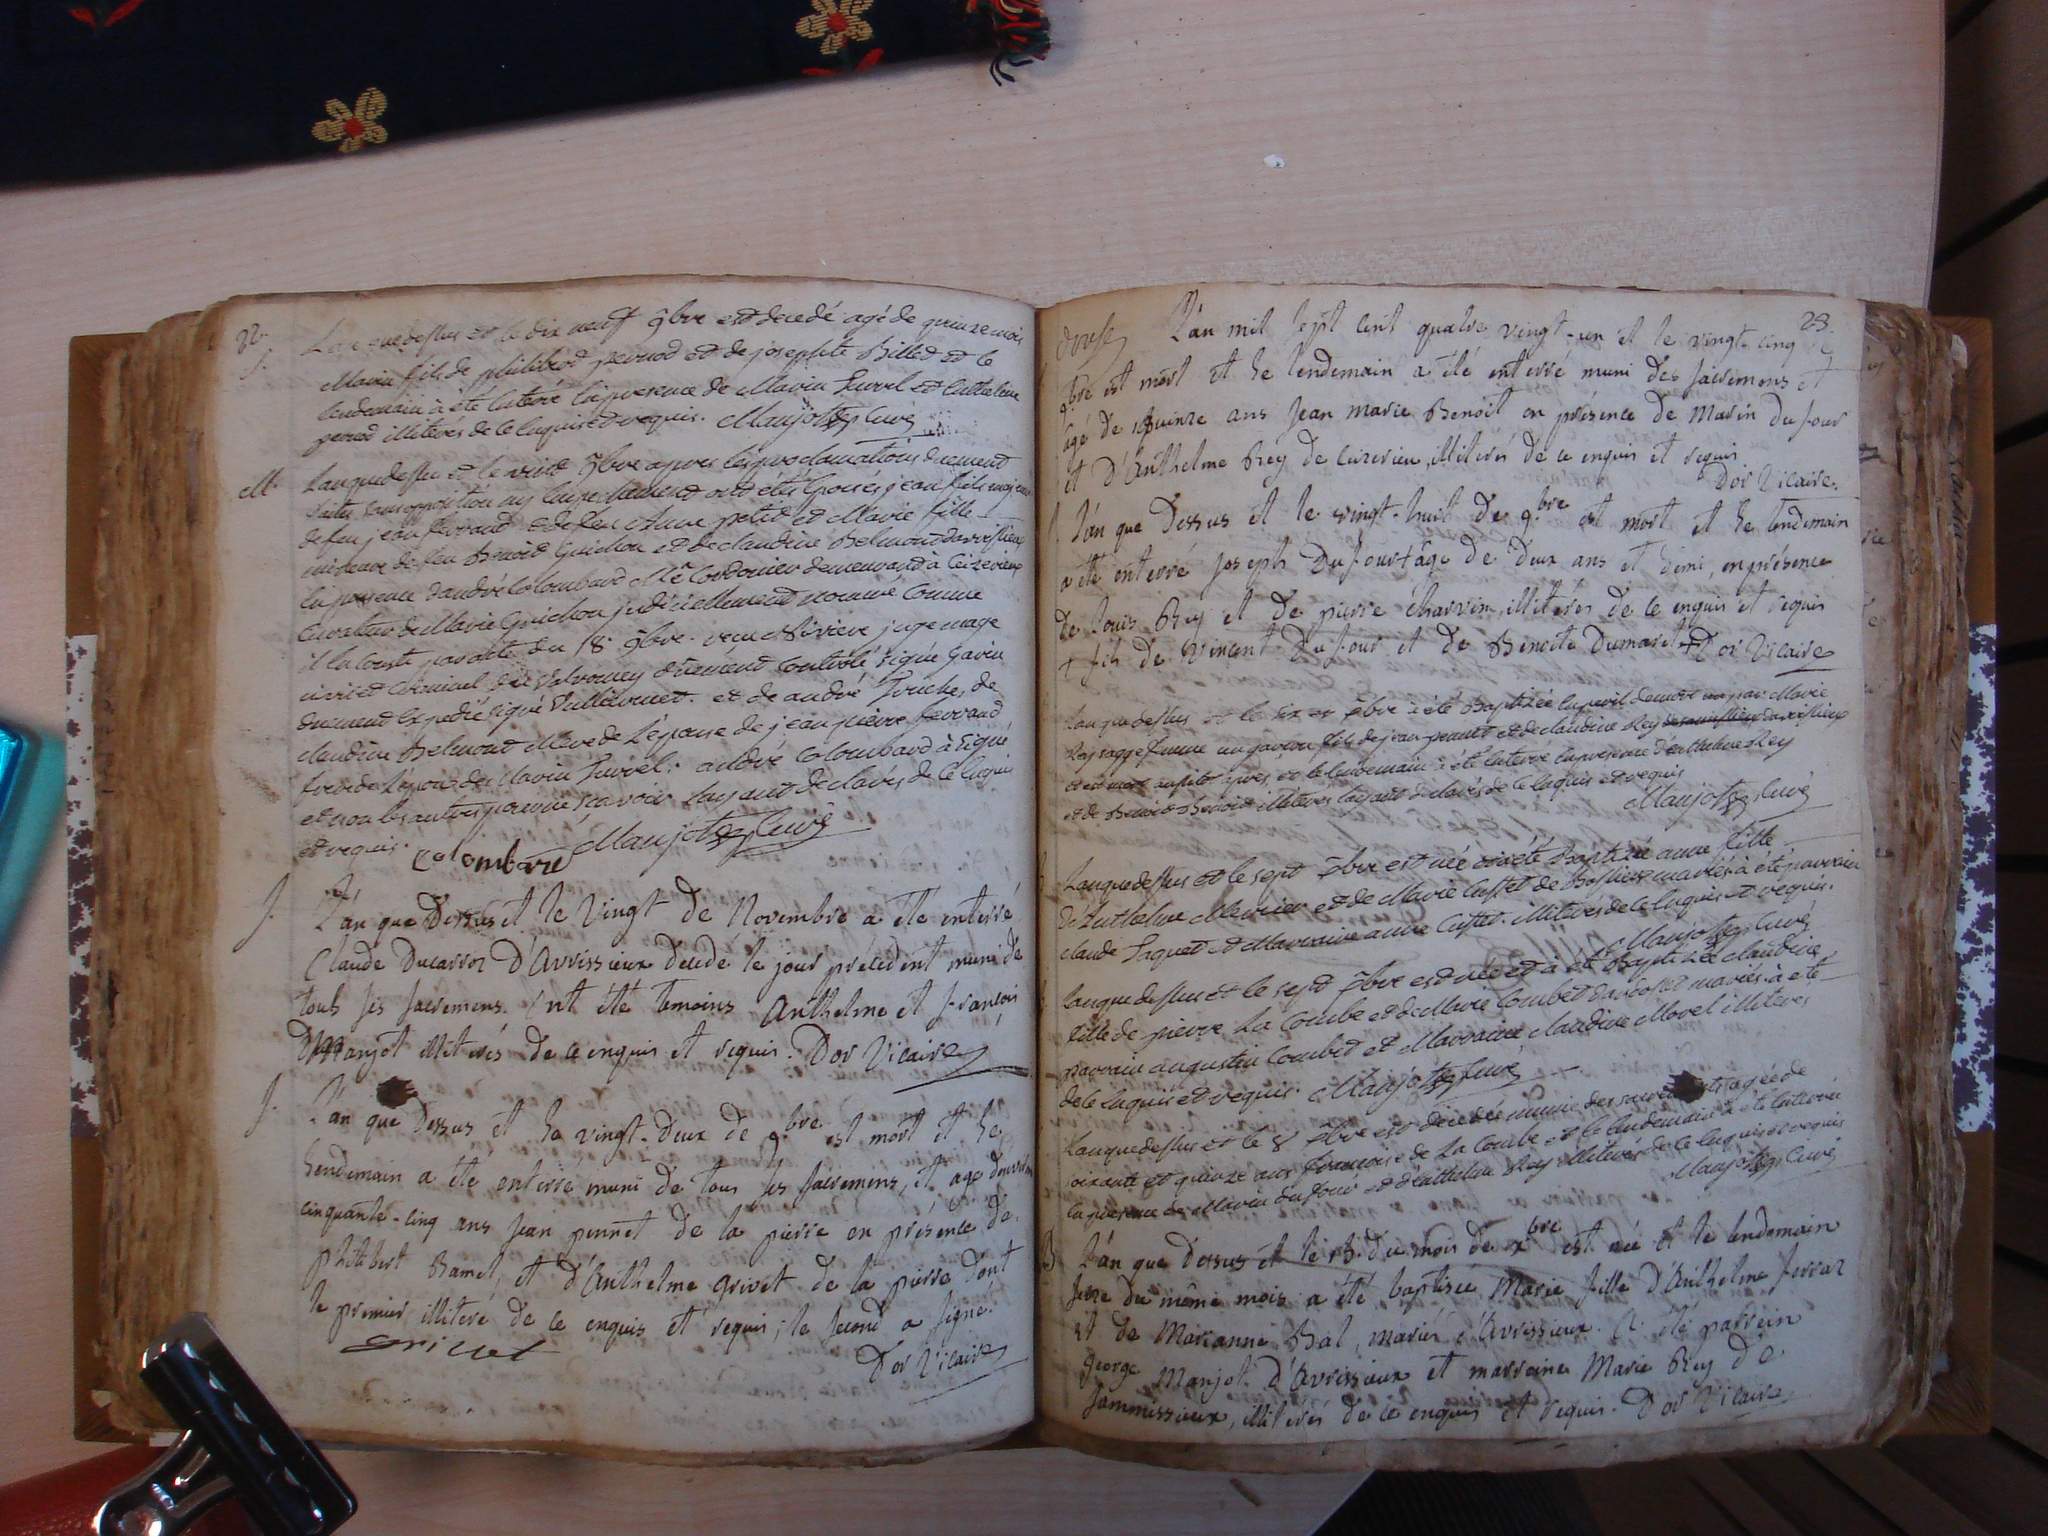 22.
L'an que dessus et le dix neuf 9bre est decedé agé de quinze mois
S.
Marin fils de philibert pernod et de josephte Billet et le
lendemain à été enterré en presence de Marin Survel et Anthelme
pernod illiterés de ce enquis et requis. Manjot curé
M. L'an que dessus et le vint 9bre apres les proclamations duement
faites sans opposition ny empechement ont étés Epousés jean fils majeur
de feu jean ferrand et de feu Anne petit et Marie fille
mineure de feu Benoit Guichon et de claudine Belmond d'avrissieux
en presence d'andré Colombard Me Cordonier demeurand à Ceizerieux
Curateur de Marie Guichon judiciellement nommé Comme
il en Conste par acte du 18 9bre. riviere juge mage
civil et Criminel de Valromey duement Controlé signé Gavin
duement Expedié signé Vullermet. et de andré
claudine Belmond Mere de L'épouse de jean pierre ferrand
frere de L'époux de Marin Survel. andré Colombard à signé
et non les autres pour ne sçavoir L'ayant declarés de ce Enquis
et requis. Colombard Manjot curé
S. L'an que Dessus et le Vingt de Novembre a été enterré
Claude Ducarroz D'Avrissieux decedé le jour précédent muni de
tous ses sacremens. Ont été temoins Anthelme et françois
Manjot illiterés de ce enquis et requis. Dor Vicaire
S. L'an que Dessus et le vingt-deux de 9bre est mort et le
lendemain a été enterré muni de tous ses sacremens, et agé d'environ
cinquante-cinq ans Jean pennet de la pierre en présence de
philibert Ramel, et d'Anthelme grivet de la pierre dont
le premier illiteré de ce enquis et requis; le second a signé.
Grivet
Dor Vicaire
23.
L'an mil sept cent quatre vingt-un et le vingt cinq
9bre est mort et le lendemain a été enterré muni des sacremens et
âgé de quinze ans Jean marie Benoit en présence de Marin Dufour
et D'Anthelme Rey de Ceizerieu, illiterés de ce enquis et requis
Dor Vicaire.
L'an que Dessus et le vingt-huit de 9bre est mort et le lendemain
a été enterré Joseph Dufour + âgé de deux ans et demi, en présence
de Louis Rey et de pierre Charvin, illiterés de ce enquis et requis
+ fils de Vincent Dufour et de Benoite Dumarest + Dor Vicaire
L'an que dessus et le six Xbre à été Baptizé en peril de mort par Marie
Rey sage femme un garcon fils de jean pennet et de claudine Rey
et est mort aussitot après et le lendemain à été enterré en presence d'anthelme Rey
et de Benoit Benoit illiterés l'ayant declarés de ce enquis et requis
Manjot curé
L'an que dessus et le sept Xbre est née et à été Baptizée anne fille
D'Anthelme Mercier et de Marie Cuffet de mariés à été parrain
claude Paquet et Marraine anne Cuffet. illiterés de ce Enquis et requis.
Manjot curé
L'an que dessus et le sept Xbre est née et à été Baptizée claudine
fille de pierre La Combe et de Marie Combet mariés à été
parrain augustin Combet et Marraine claudine Morel illiterés
de ce enquis et requis. Manjot curé
L'an que dessus et le 8 Xbre est decedée munie des sacrements agée de
soixante et quinze ans francoise de La Combe et le lendemain à été Enterrée
En presence de Marin dufour et d'anthelme Rey illiterés de ce Enquis et requis
Manjot curé
B L'an que Dessus et le du mois de Xbre est née et le lendemain
seize du même mois a été baptisée Marie fille D'Anthelme ferraz
et de Marianne Bal, mariés d'Avrissieux. A été parrein
George Manjot D'Avrissieux et marreine Marie Rey de
Sammissieux, illiterés de ce enquis et requis. Dor Vicaire